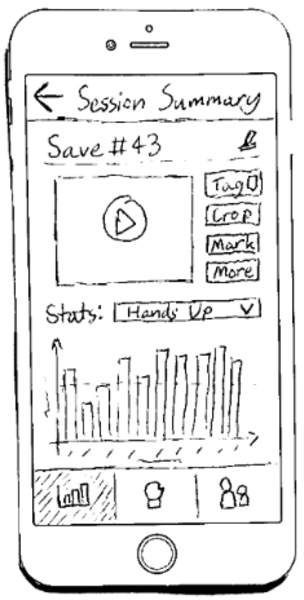 Session Summary
Save #43
Tag
Crop
Mark
More
Stats: Hands Up